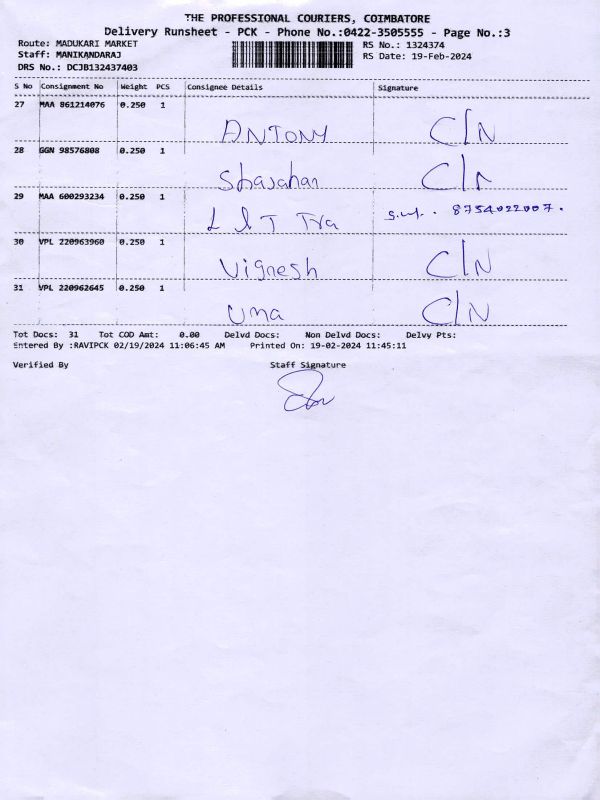 THE PROFESSIONAL COURIERS, COIMBATORE
Delivery Runsheet - PCK - Phone No.:0422-3505555 - Page No.:3
Route: MADUKARI MARKET RS No.: 1324374
Staff: MANIKANDARAJ RS Date: 19-Feb-2024
DRS No.: DCJB132437403
S No Consignment No Weight PCS Consignee Details Signature
27 MAA 861214076 0.250 1
ANTONY C/N
28 GGN 98576808 0.250 1
Shajahan C/N
29 MAA 600293234 0.250 1
L &T Tra 8754022007.
30 VPL 220963960 0.250 1
Vignesh C/N
31 VPL 220962645 0.250 1
Uma C/N
Tot Docs: 31 Tot COD Amt: 0.00 Delvd Docs: Non Delvd Docs: Delvy Pts:
Entered By :RAVIPCK 02/19/2024 11:06:45 AM Printed On: 19-02-2024 11:45:11
Verified By Staff Signature